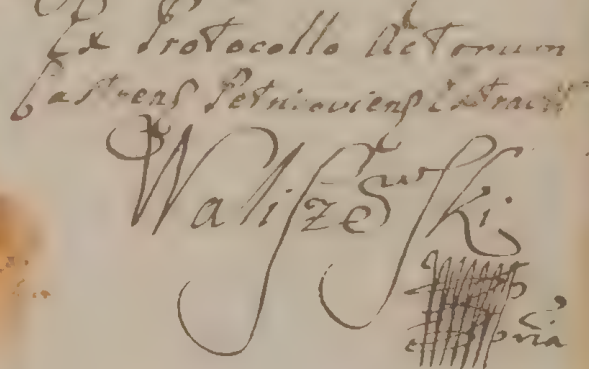 Ex Protocollo Actorum
Castrens Petricoviens Extract
Waliszewski